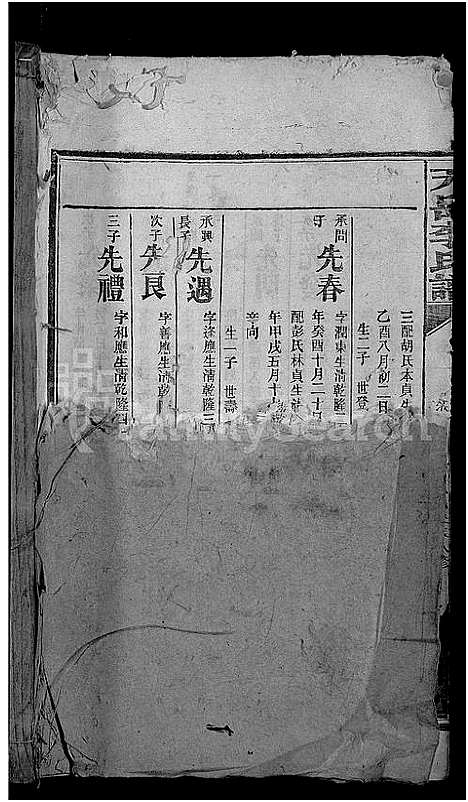 李氏譜
三配胡氏本貞生
乙酉八月初二日
生二子 世登
承問
子
先春
字潤東生清乾隆
年癸酉十月二十日
配彭氏林貞生
年甲戌五月十
辛向
生一子 世壽
承興
長子
先遇
字逢應生清乾隆三
次子
先良
字善應生清乾
三子
先禮
字和應生清乾隆四
familysearch